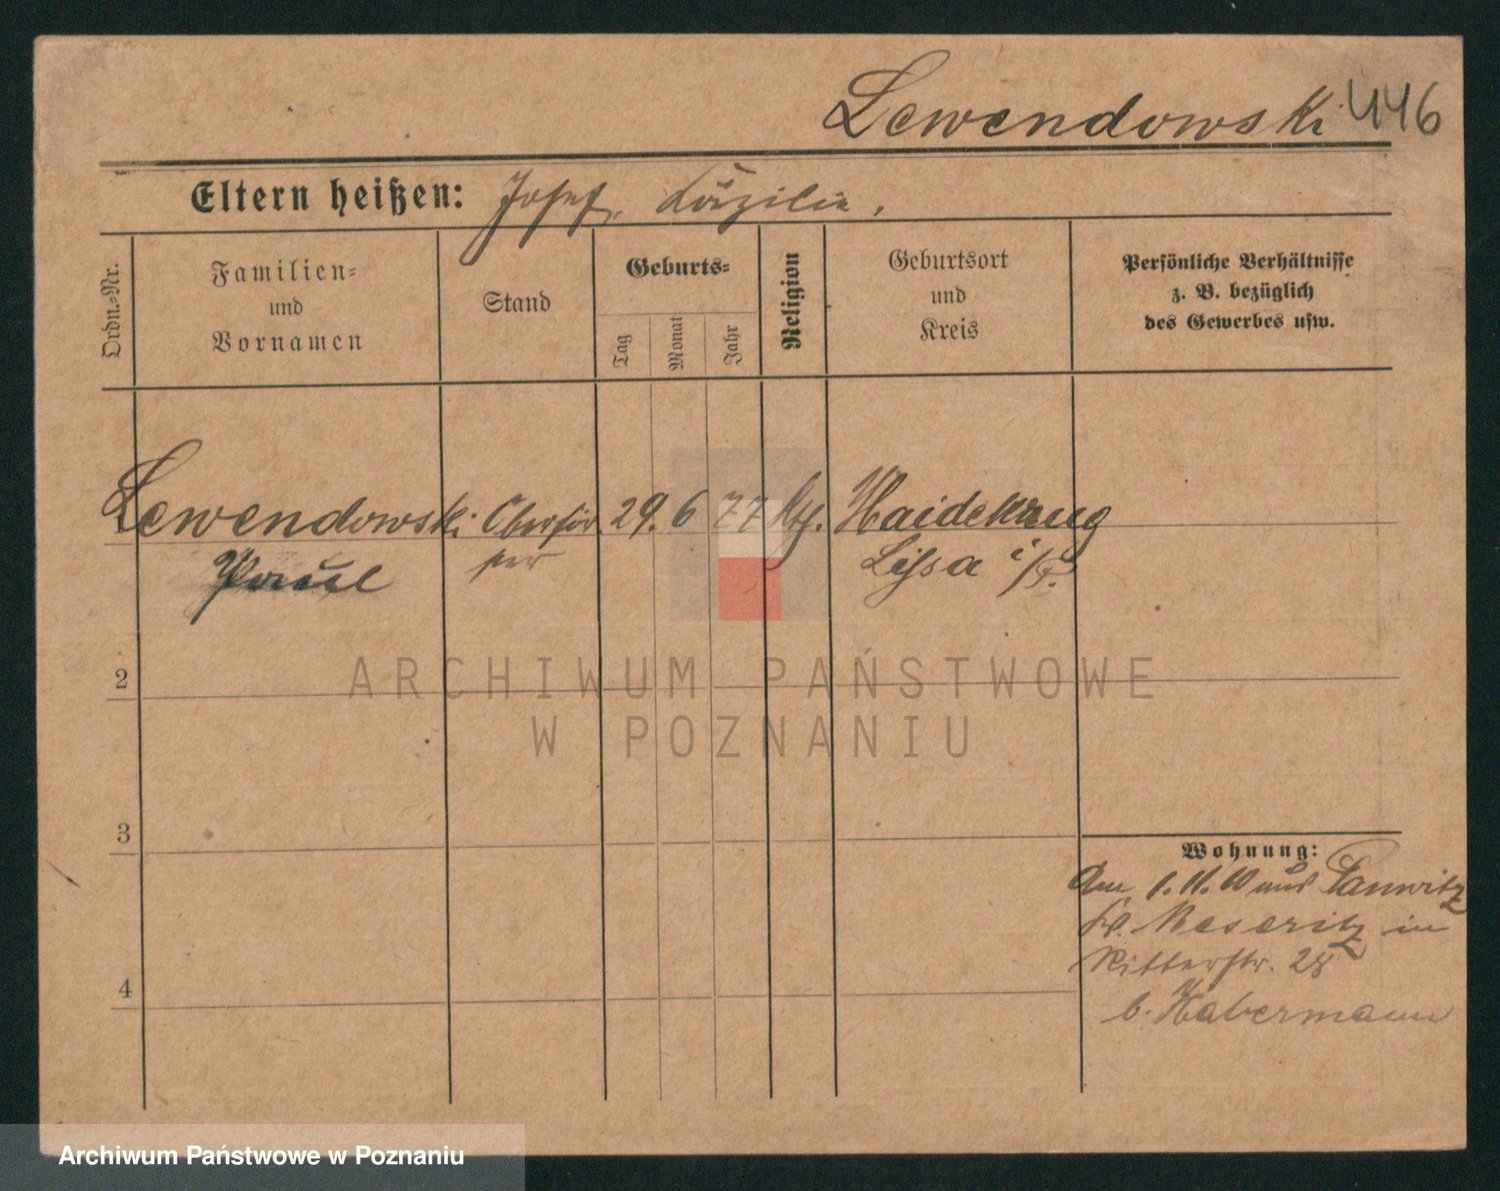 Lewendowski 446
Eltern heißen: Josef, Cäzilie,
Ordn.-Nr.
Familien-
und
Vornamen
Stand
Geburts-
Tag
Monat
Jahr
Religion
Geburtsort
und
Kreis
Persönliche Verhältnisse
z. B. bezüglich
des Gewerbes usw.
Lewendowski Oberför 29. 6 77 Haidekrug
Paul ster Lissa i/P.
2
3
4
Wohnung:
Am 1. 11. 10 aus
Kr. Meseritz in
Ritterstr. 28
b. Habermann
ARCHIWUM PAŃSTWOWE
W POZNANIU
Archiwum Państwowe w Poznaniu